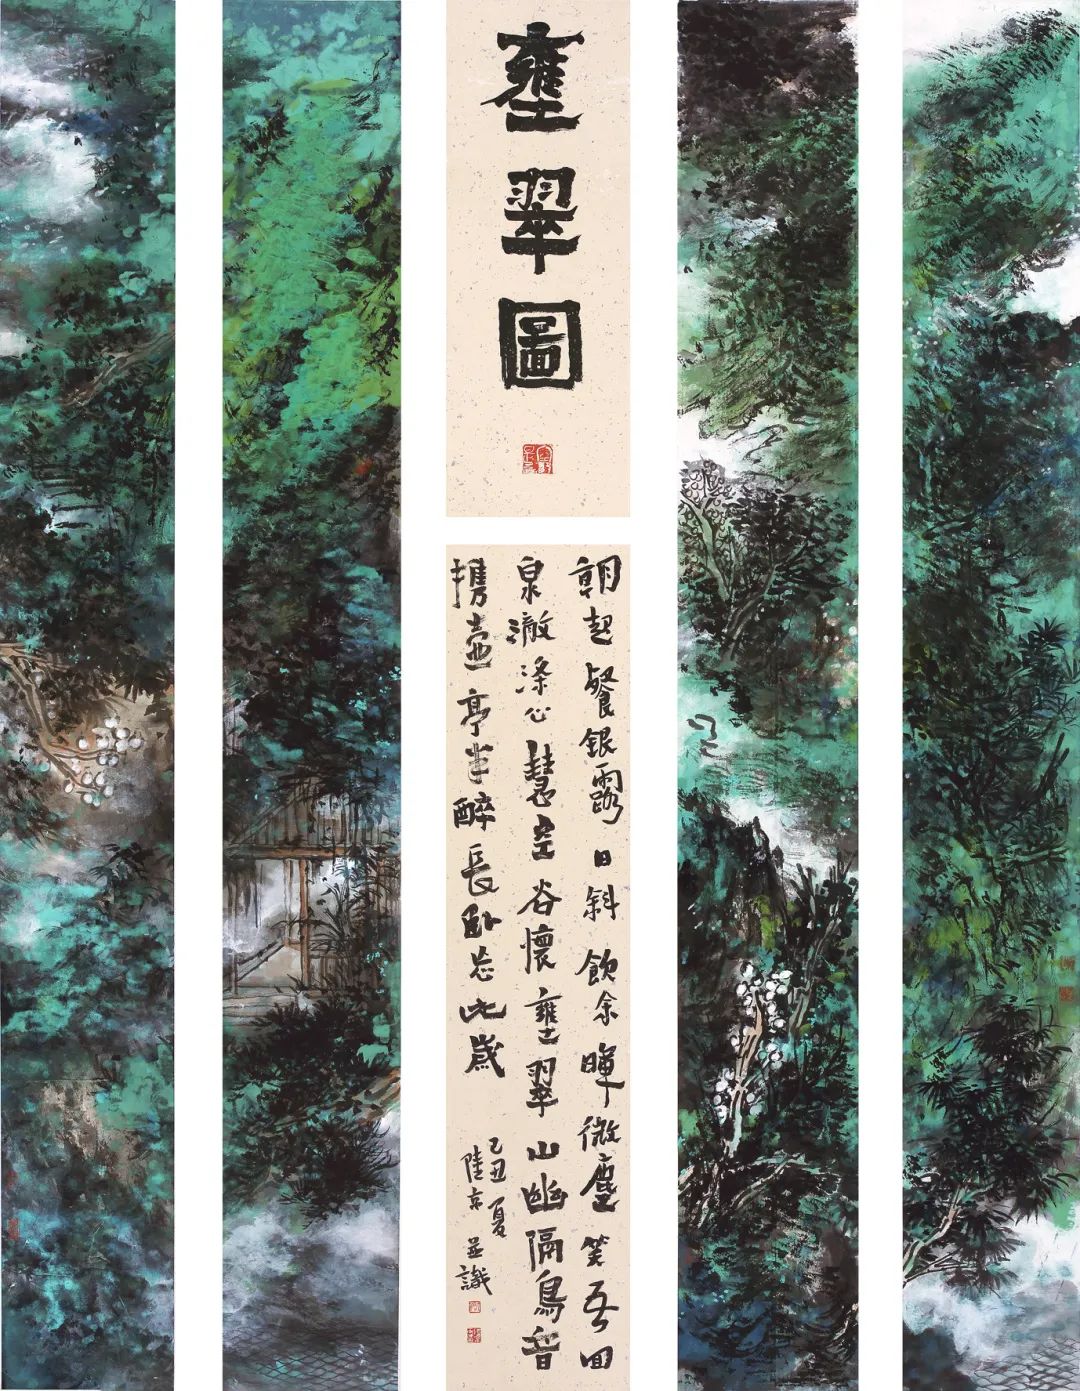 壅翠圖
朝起餐銀露日斜飲余暉微塵笑吾回
泉澈涤心慧空谷懷壅翠山幽隔鳥音
携壺亭半醉長卧忘此歲
己丑夏
陸京並識